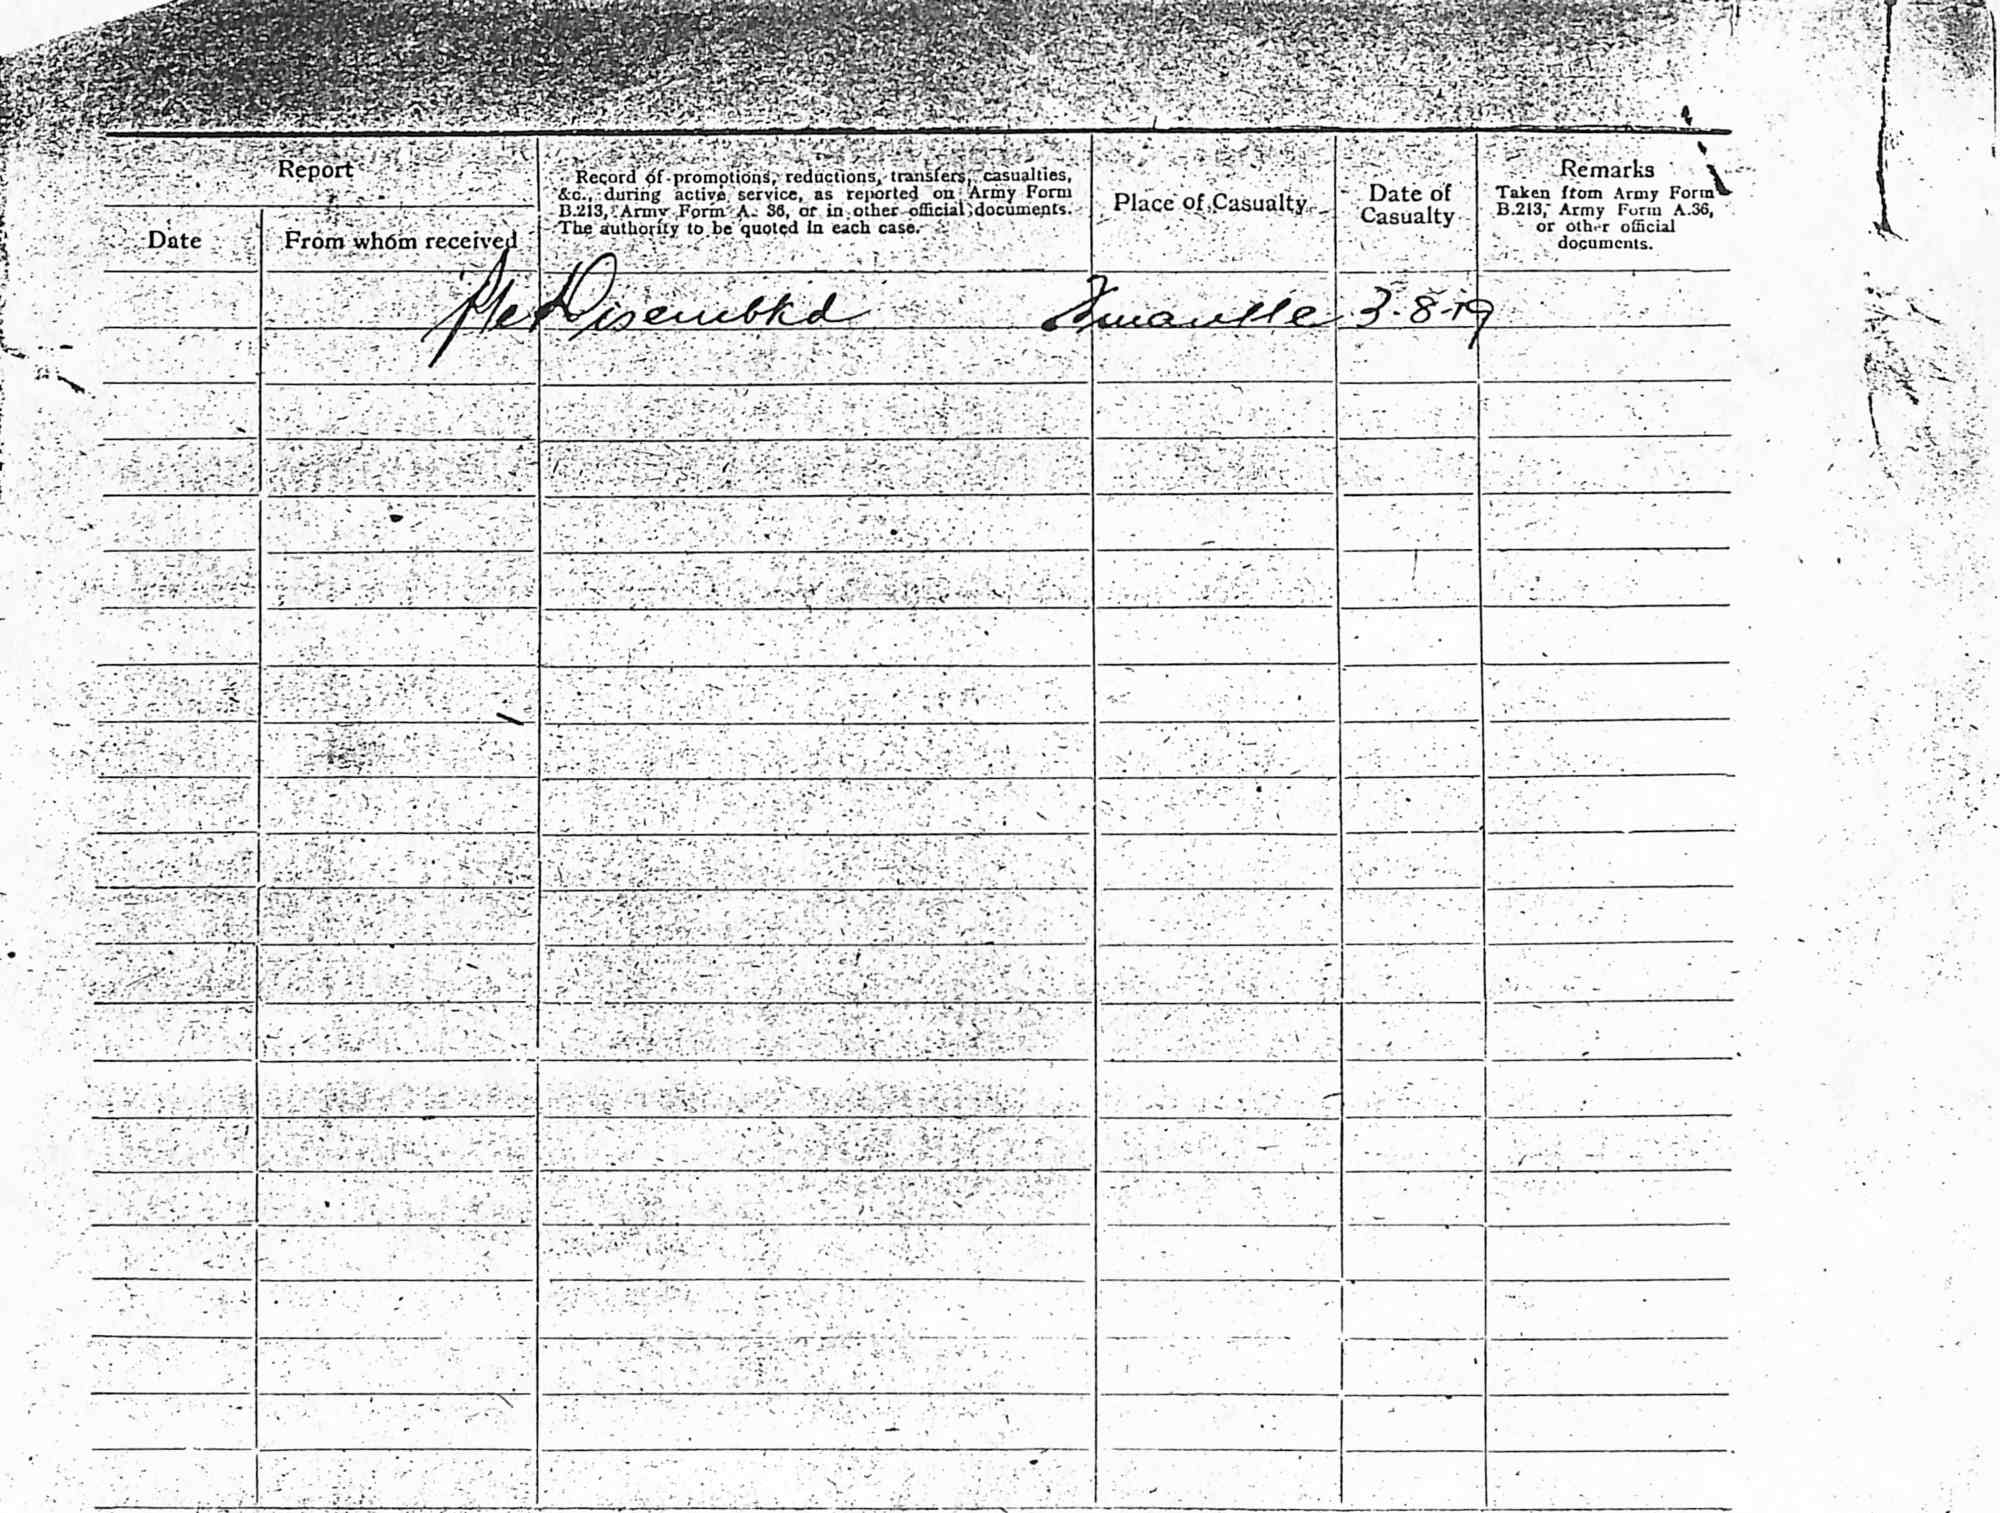 Report
Date
From whom received
Record of promotions, reductions, transfers, casualties,
&c., during active service, as reported on Army Form
B.213, Army Form A. 36, or in other official documents.
The authority to be quoted in each case.
Place of Casualty
Date of
Casualty
Remarks
Taken from Army Form
B.213, Army Form A.36,
or other official
documents.
Pte Disembkd Fmantle 3-8-19